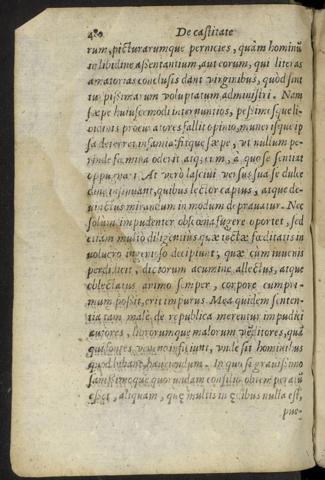 480 De castitate
rum, picturarumque pernicies, quàm hominũ
libidine assentantium, aut eorum, qui literas
amatorias conclusis dant virginibus, quòd sint
turpissimarum voluptatum administri. Nam
sæpe huiuscemodi internuntios, pessimosque li-
bidinis procuratores fallit opinio, munerisque ip
sa deterret insania: fitque sæpe, vt nullum pe-
rinde fœmina oderit atque eum, à quo se sentiat
oppugnari. At verò lasciui versus sua se dulce
dine insinuant, quibus lector captus, atque de-
uinctus mirandum in modum deprauatur. Nec
solùm impudenter obscœna fugere oportet, sed
etiam multo diligentius quæ tectæ fœditatis in
volucro ingenioso decipiunt, quæ cum iuuenis
perdidicit, dictorum acumine allectus, atque
oblectatus animo semper, corpore cum pri-
mum possit, erit impurus. Mea quidem senten-
tia tam malè de republica merentur impudici
autores, librorumque malorum venditores, quá
qui fontes veneno inficiunt, vnde sit hominibus
quod libant, hauriendum. In quo si grauissimo
sanctissimoque quorundam consilio obtemperatũ
esset, aliquam, quæ multis in ædibus nulla est,
pue-